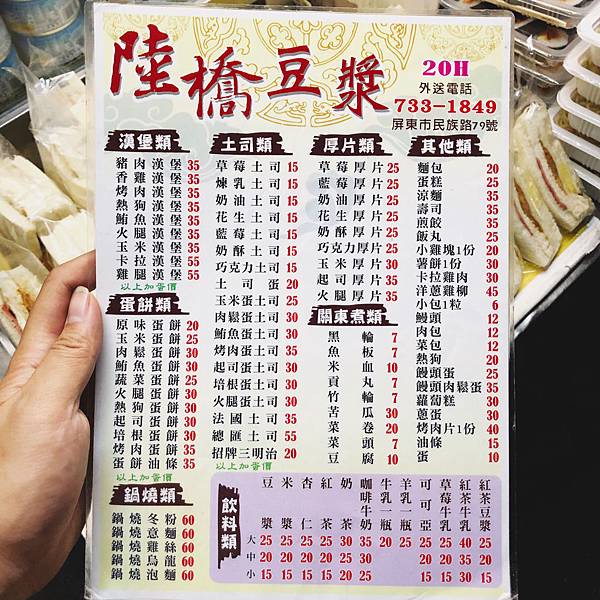 陸橋豆漿
20H
外送電話
733-1849
屏東市民族路79號
漢堡類
豬肉漢堡 35
香雞漢堡 35
烤肉漢堡 35
熱狗漢堡 35
鮪魚漢堡 35
火腿漢堡 35
玉米漢堡 35
卡拉漢堡 55
雞腿漢堡 55
以上加蛋價
蛋餅類
原味蛋餅 20
玉米蛋餅 25
肉鬆蛋餅 30
鮪魚蛋餅 30
蔬菜蛋餅 25
火腿蛋餅 30
熱狗蛋餅 30
起司蛋餅 30
培根蛋餅 30
烤肉蛋餅 35
蛋餅油條 35
以上加蛋價
鍋燒類
鍋燒冬粉 60
鍋燒意麵 60
鍋燒雞絲 60
鍋燒烏龍 60
鍋燒泡麵 60
土司類
草莓土司 15
煉乳土司 15
奶油土司 15
花生土司 15
藍莓土司 15
奶酥土司 15
巧克力土司 15
土司蛋 20
玉米蛋土司 25
肉鬆蛋土司 30
鮪魚蛋土司 30
烤肉蛋土司 35
起司蛋土司 30
培根蛋土司 30
火腿蛋土司 30
法國土司 35
總匯土司 55
招牌三明治 20
以上加蛋價
厚片類
草莓厚片 25
藍莓厚片 25
奶油厚片 25
花生厚片 25
奶酥厚片 25
巧克力厚片 25
玉米厚片 30
起司厚片 35
火腿厚片 35
關東煮類
黑輪 7
魚板 7
米血 10
貢丸 7
竹輪 7
苦瓜 30
菜卷 20
菜頭 7
豆腐 10
其他類
麵包 20
蛋糕 25
涼麵 35
壽司 35
煎餃 35
飯丸 25
小雞塊1份 20
薯餅1份 30
卡拉雞肉 30
洋蔥雞柳 45
小包1粒 6
饅頭 12
肉包 12
菜包 12
熱狗 20
饅頭蛋 25
饅頭肉鬆蛋 35
蘿蔔糕 30
蔥蛋 30
烤肉片1份 40
油條 15
蛋 10
飲料類
豆漿 米漿 杏仁 紅茶 奶茶 咖啡牛奶 牛乳一瓶 羊乳一瓶 可可亞 草莓牛乳 紅茶牛乳 紅茶豆漿